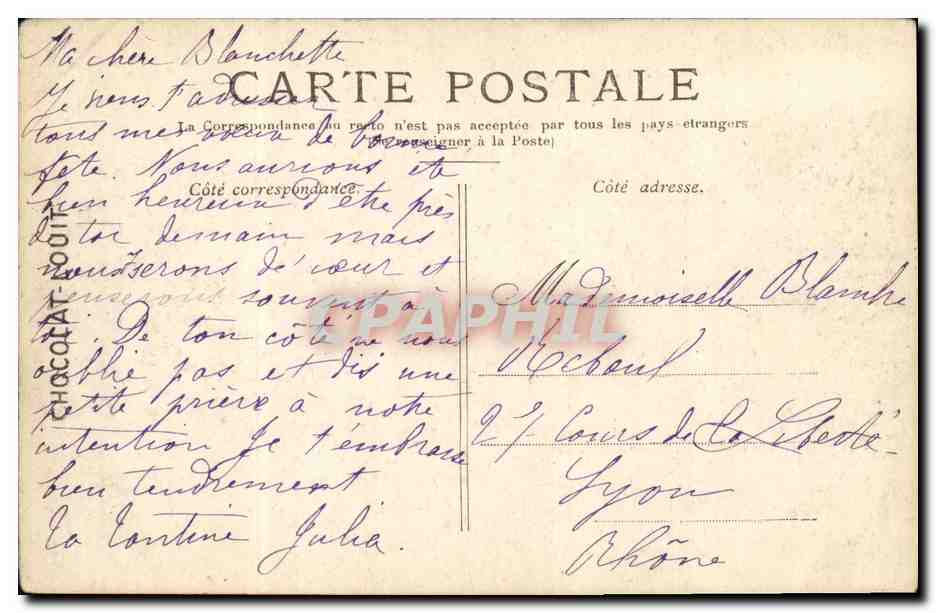 Ma chère Blanchette
Je viens t'adresser
CARTE POSTALE
tous mes vœux de bonne
La Correspondance au recto n'est pas acceptée par tous les pays étrangers
(Se renseigner à la Poste)
fête. Nous aurions été
Côté correspondance.
Côté adresse.
bien heureux d'être près
de toi demain mais
nous serons de cœur et
penserons souvent à
toi. De ton côté ne nous
oublie pas et dis une
petite prière à notre
intention Je t'embrasse
bien tendrement
Ta Tantine Julia.
CHOCOLAT-LOUIT
CPAPHIL
Mademoiselle Blanche
Reboul
27 Cours de la Liberté
Lyon
Rhône